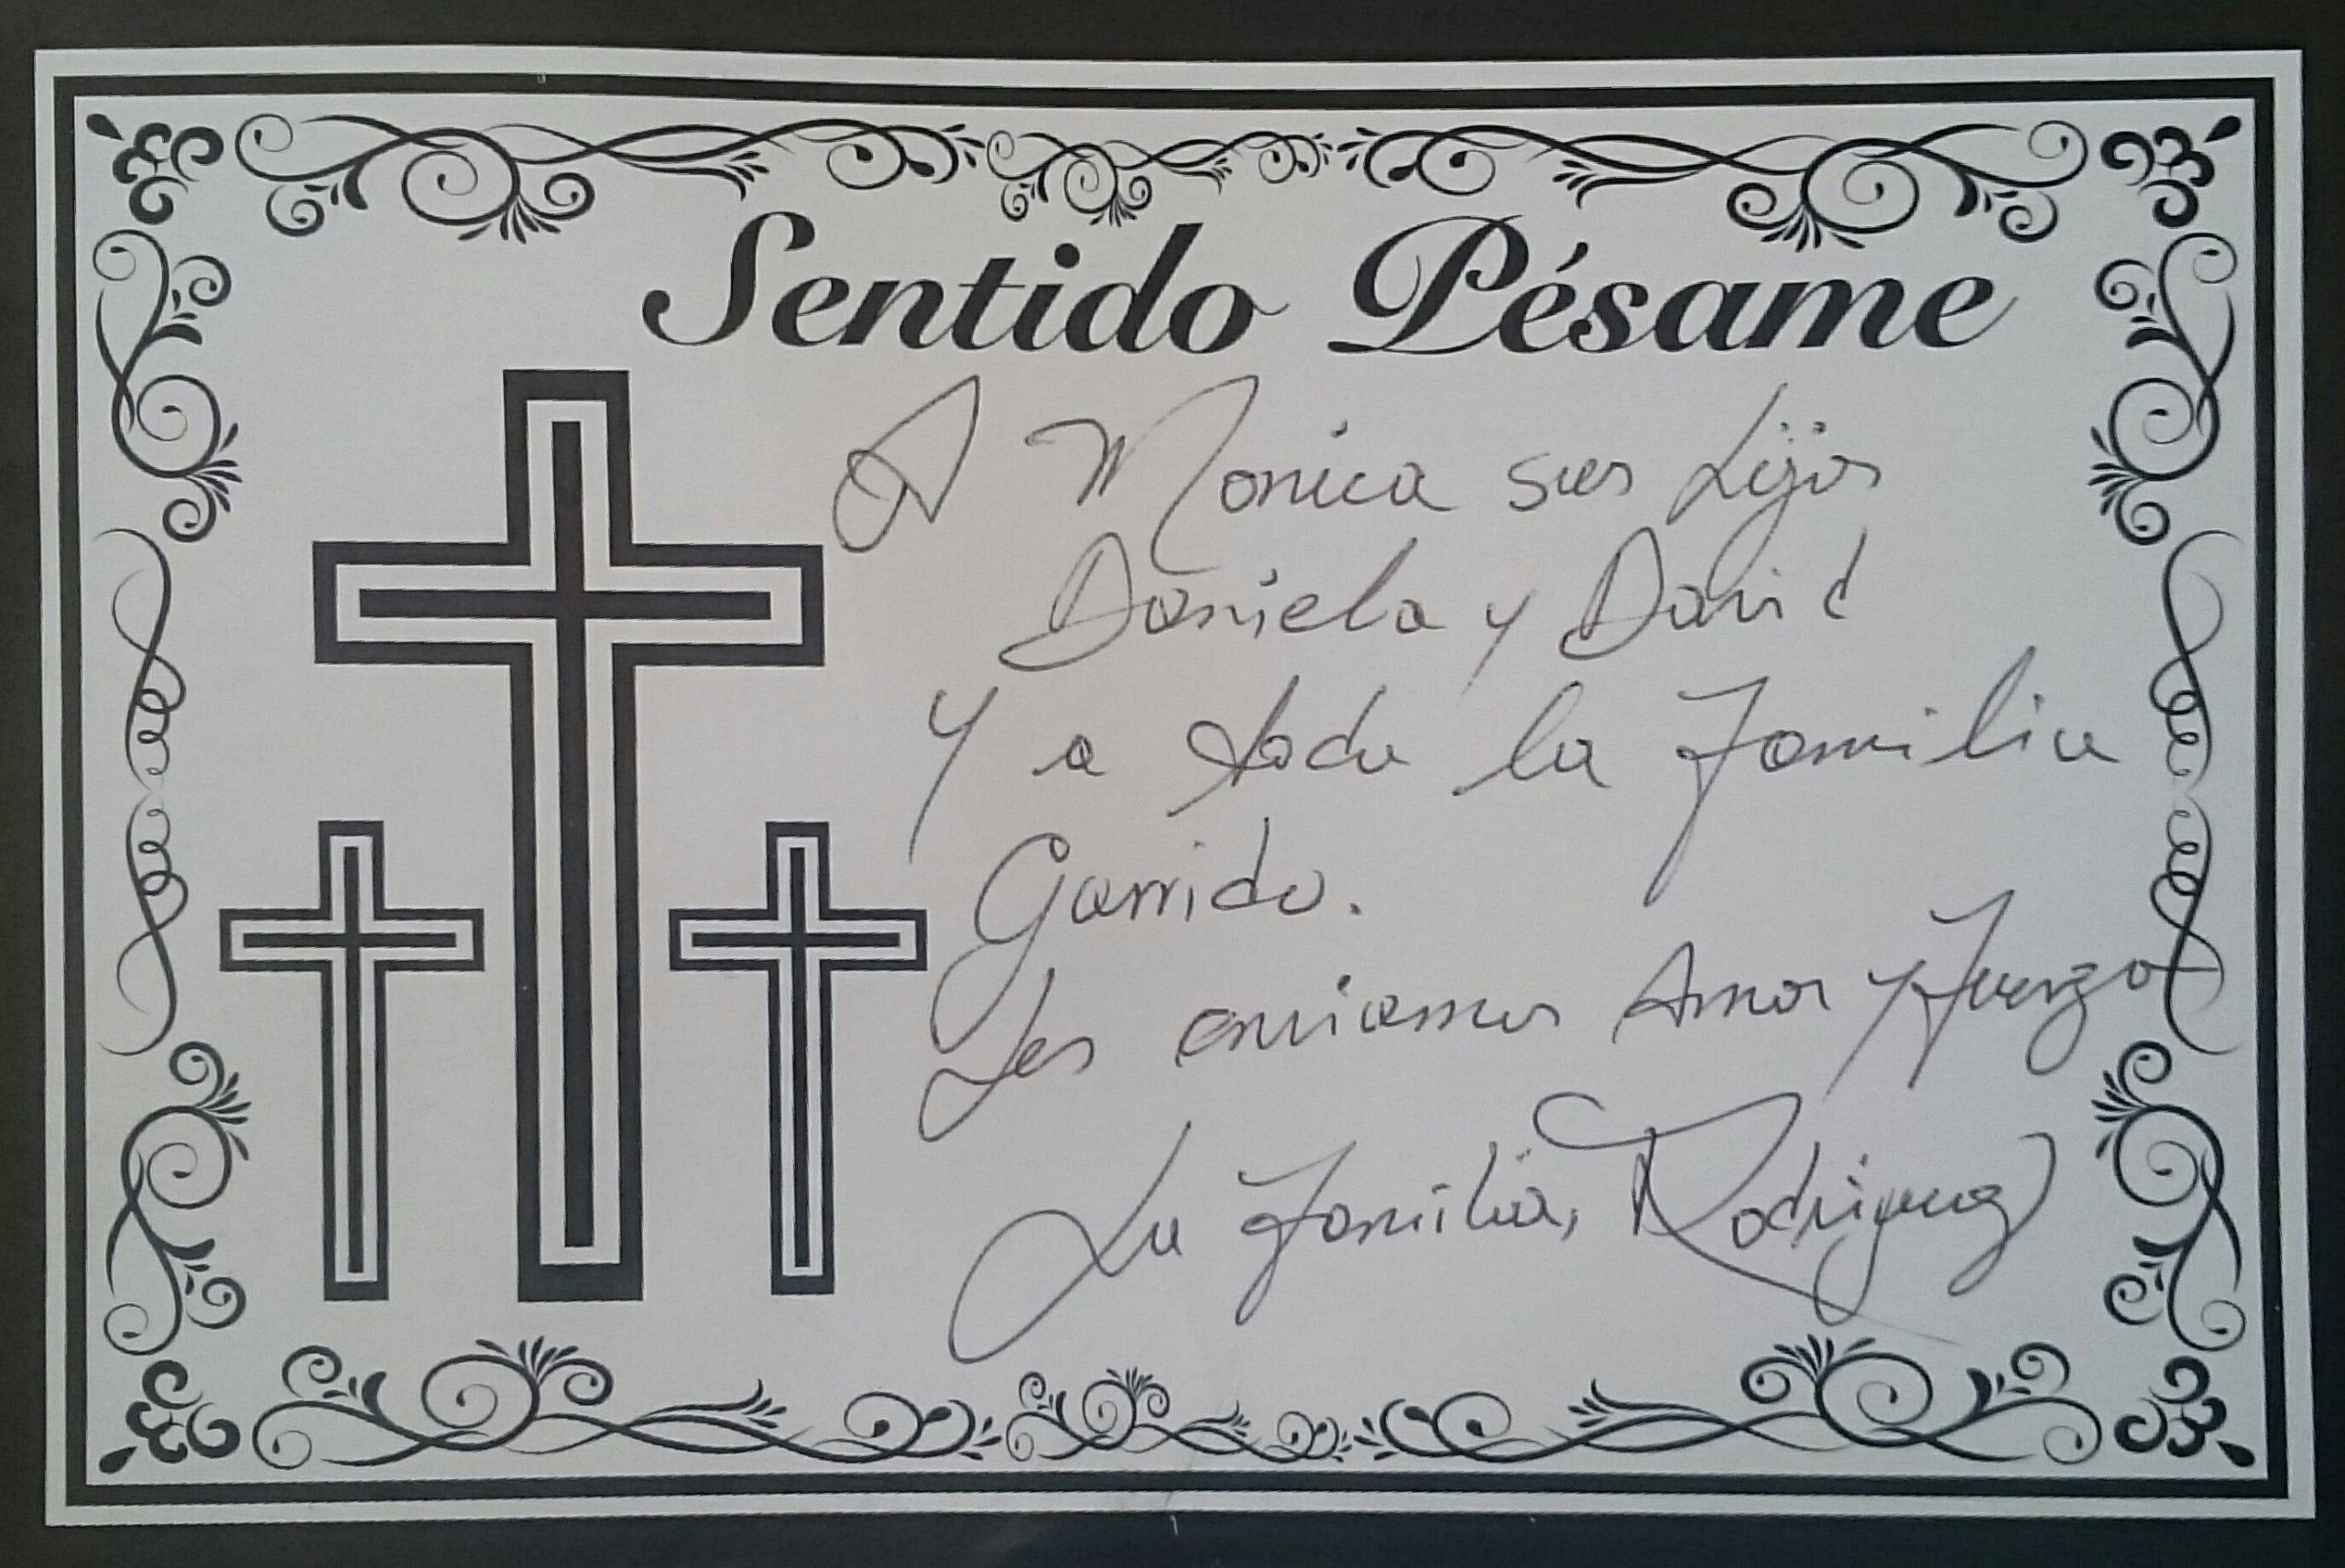 Sentido Pésame
A Monica sus hijos
Daniela y David
y a toda la familia
Garrido.
Les enviamos Amor y fuerza
La familia, Rodriguez